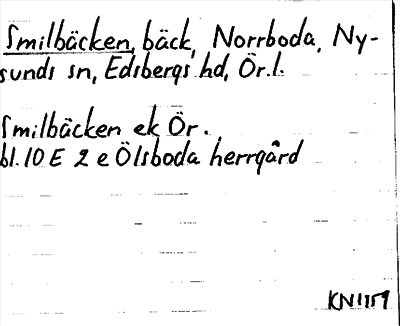 Smilbäcken, bäck, Norrboda, Ny-
sunds sn, Edsbergs hd, Ör.l.
Smilbäcken ek Ör.
bl. 10 E 2 e Ölsboda herrgård